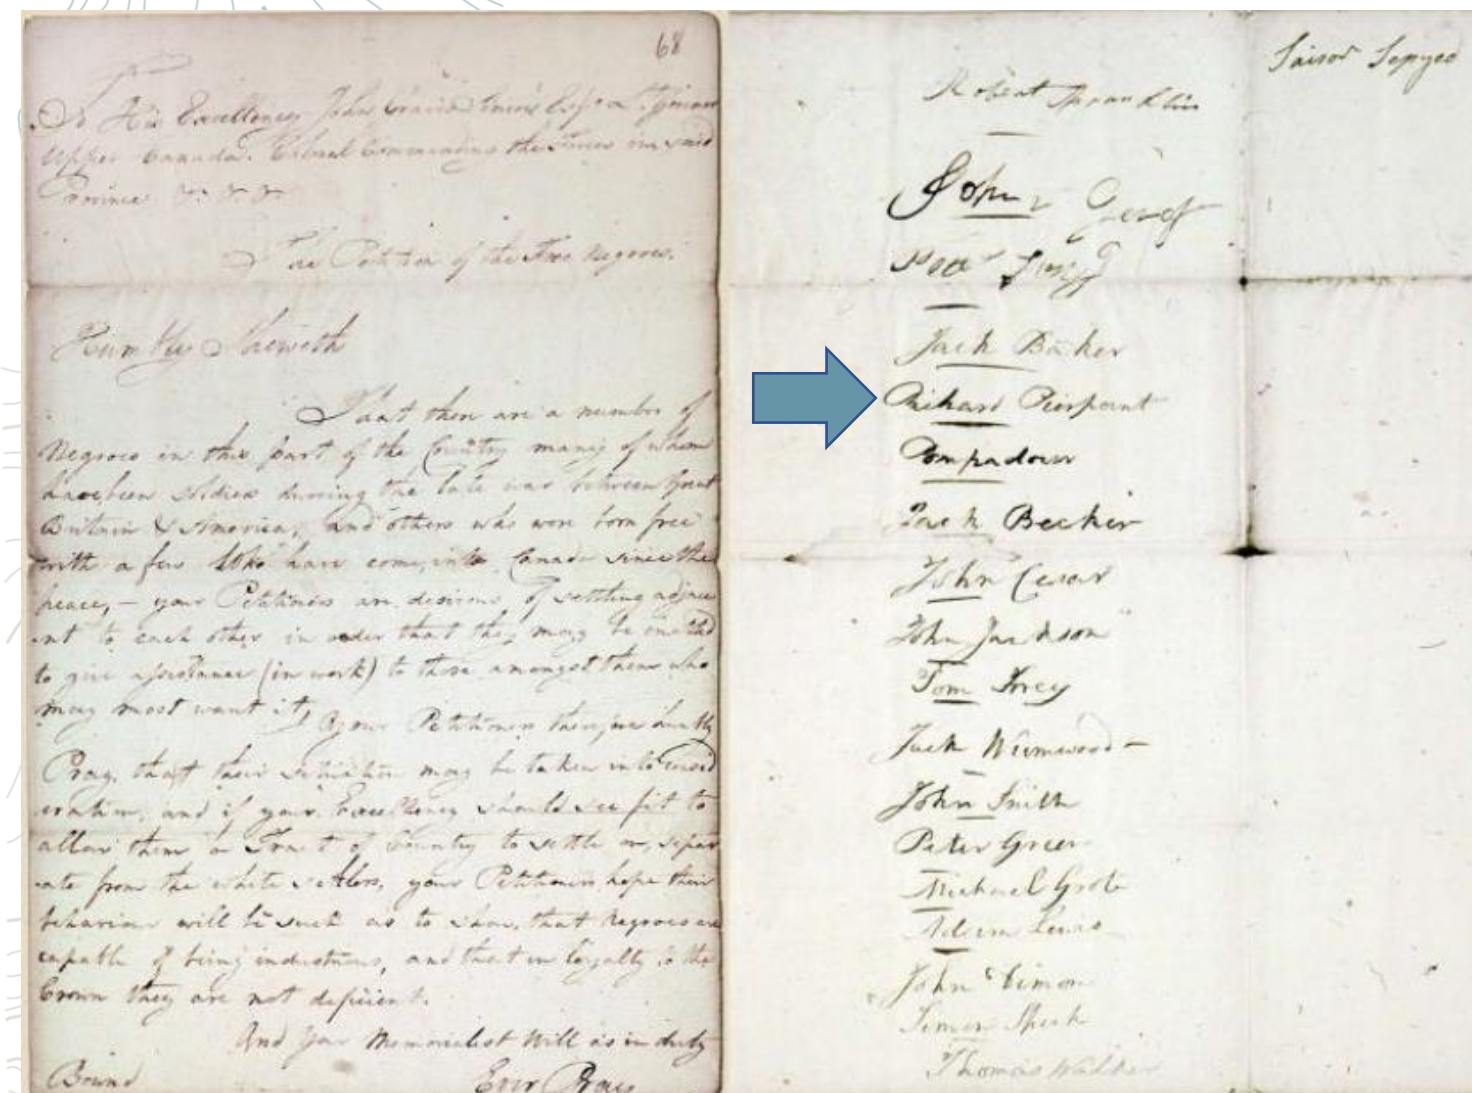 68
To His Excellency John Graves Simcoe Esqr Lt Governor
Upper Canada. Colonel Commanding the Forces in said
Province &. &. &.
The Petition of the Free Negroes.
Humbly Sheweth
That there are a number of
Negroes in this part of the Country many of whom
have been soldiers during the late war between Great
Britain & America, and others who were born free
with a few who have come into Canada since the
peace, – your Petitioners are desirous of settling adjac
ent to each other in order that they may be enabled
to give assistance (in work) to those amongst them who
may most want it,
your Petitioners therefore humbly
Pray, that their situation may be taken into consid
eration, and if your Excellency should see fit to
allow them a Tract of Country to settle on, separ
ate from the white settlers, your Petitioners hope their
behaviour will be such as to shew, that Negroes are
capable of being industrious, and that in loyalty to the
Crown they are not deficient.
And your Memorialist Will as in duty
Bound Ever Pray
Robert Franklin
John
Jack Baker
Pompadour
Jack Becker
John Cesar
John Jackson
Tom Frey
Jack Wurmwood –
John Smith
Peter Green
Michael Grote
Adam Lewis
John Simon
Thomas Walker